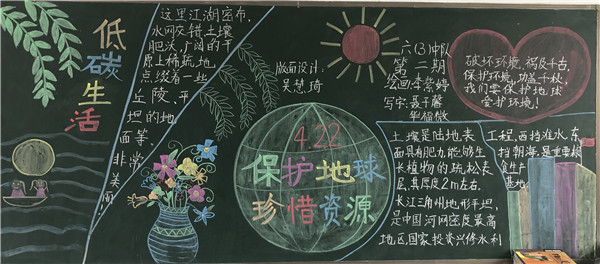 低碳生活
这里江湖密布，
水网交错，土壤
肥沃，广阔的平
原上稀疏地
点缀着一些
丘陵，平
坦的地
面等，
非常
美丽！
版面设计：
吴慧琦
六(3)中队
第二期
绘画：李紫婷
写字：聂千馨
破坏环境，祸及千古，
保护环境，功盖千秋，
我们要保护地球
爱护环境！
4.22
保护地球
珍惜资源
土壤是陆地表
面具有肥力，能够生
长植物的疏松表
层，其厚度2m左右。
长江三角州地形平坦，
是中国河网密度最高
地区，国家投资兴修水利
工程，西挡淮水，东
挡朝海，是重要粮
食生产
基地。